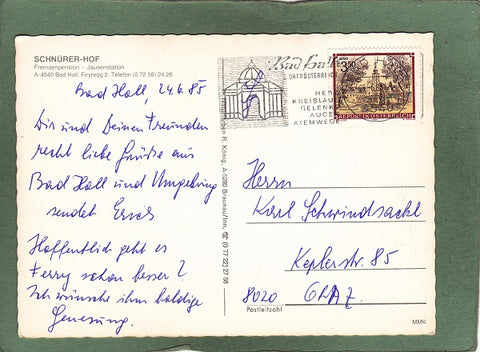 SCHNÜRER-HOF
Fremdenpension – Jausenstation
A-4540 Bad Hall, Feyregg 2. Telefon (0 72 58) 24 28
Bad Hall, 24.6.85
Dir und Deinen Freunden
recht liebe Grüße aus
Bad Hall und Umgebung
sendet
Hoffentlich geht es
Ferry schon besser?
Ich wünsche ihm baldige
Genesung.
R. König, A-5280 Braunau/Inn, ☎ (0 77 22) 27 58
Bad Hall
OBERÖSTERREICH
HERZ
KREISLAUF
GELENKE
AUGEN
ATEMWEGE
3.50
REPUBLIK ÖSTERREICH
Herrn
Karl Schwindsackl
Keplerstr. 85
8020 GRAZ
Postleitzahl
MMK